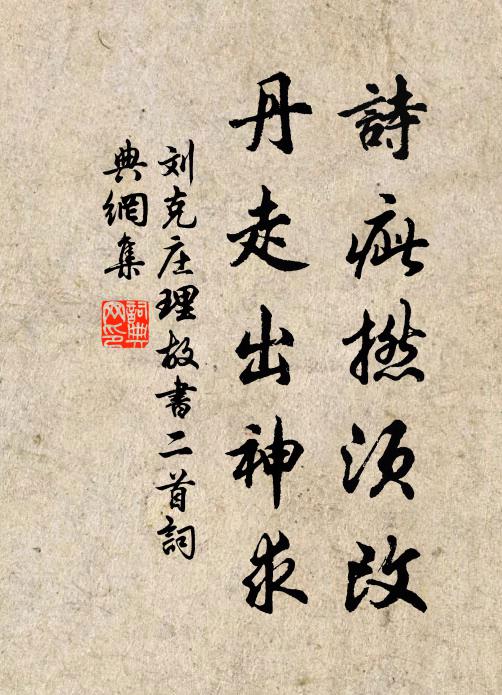 詩疵撚須改
丹走出神求
刘克庄理故書二首詞
典網集
詞典
网印